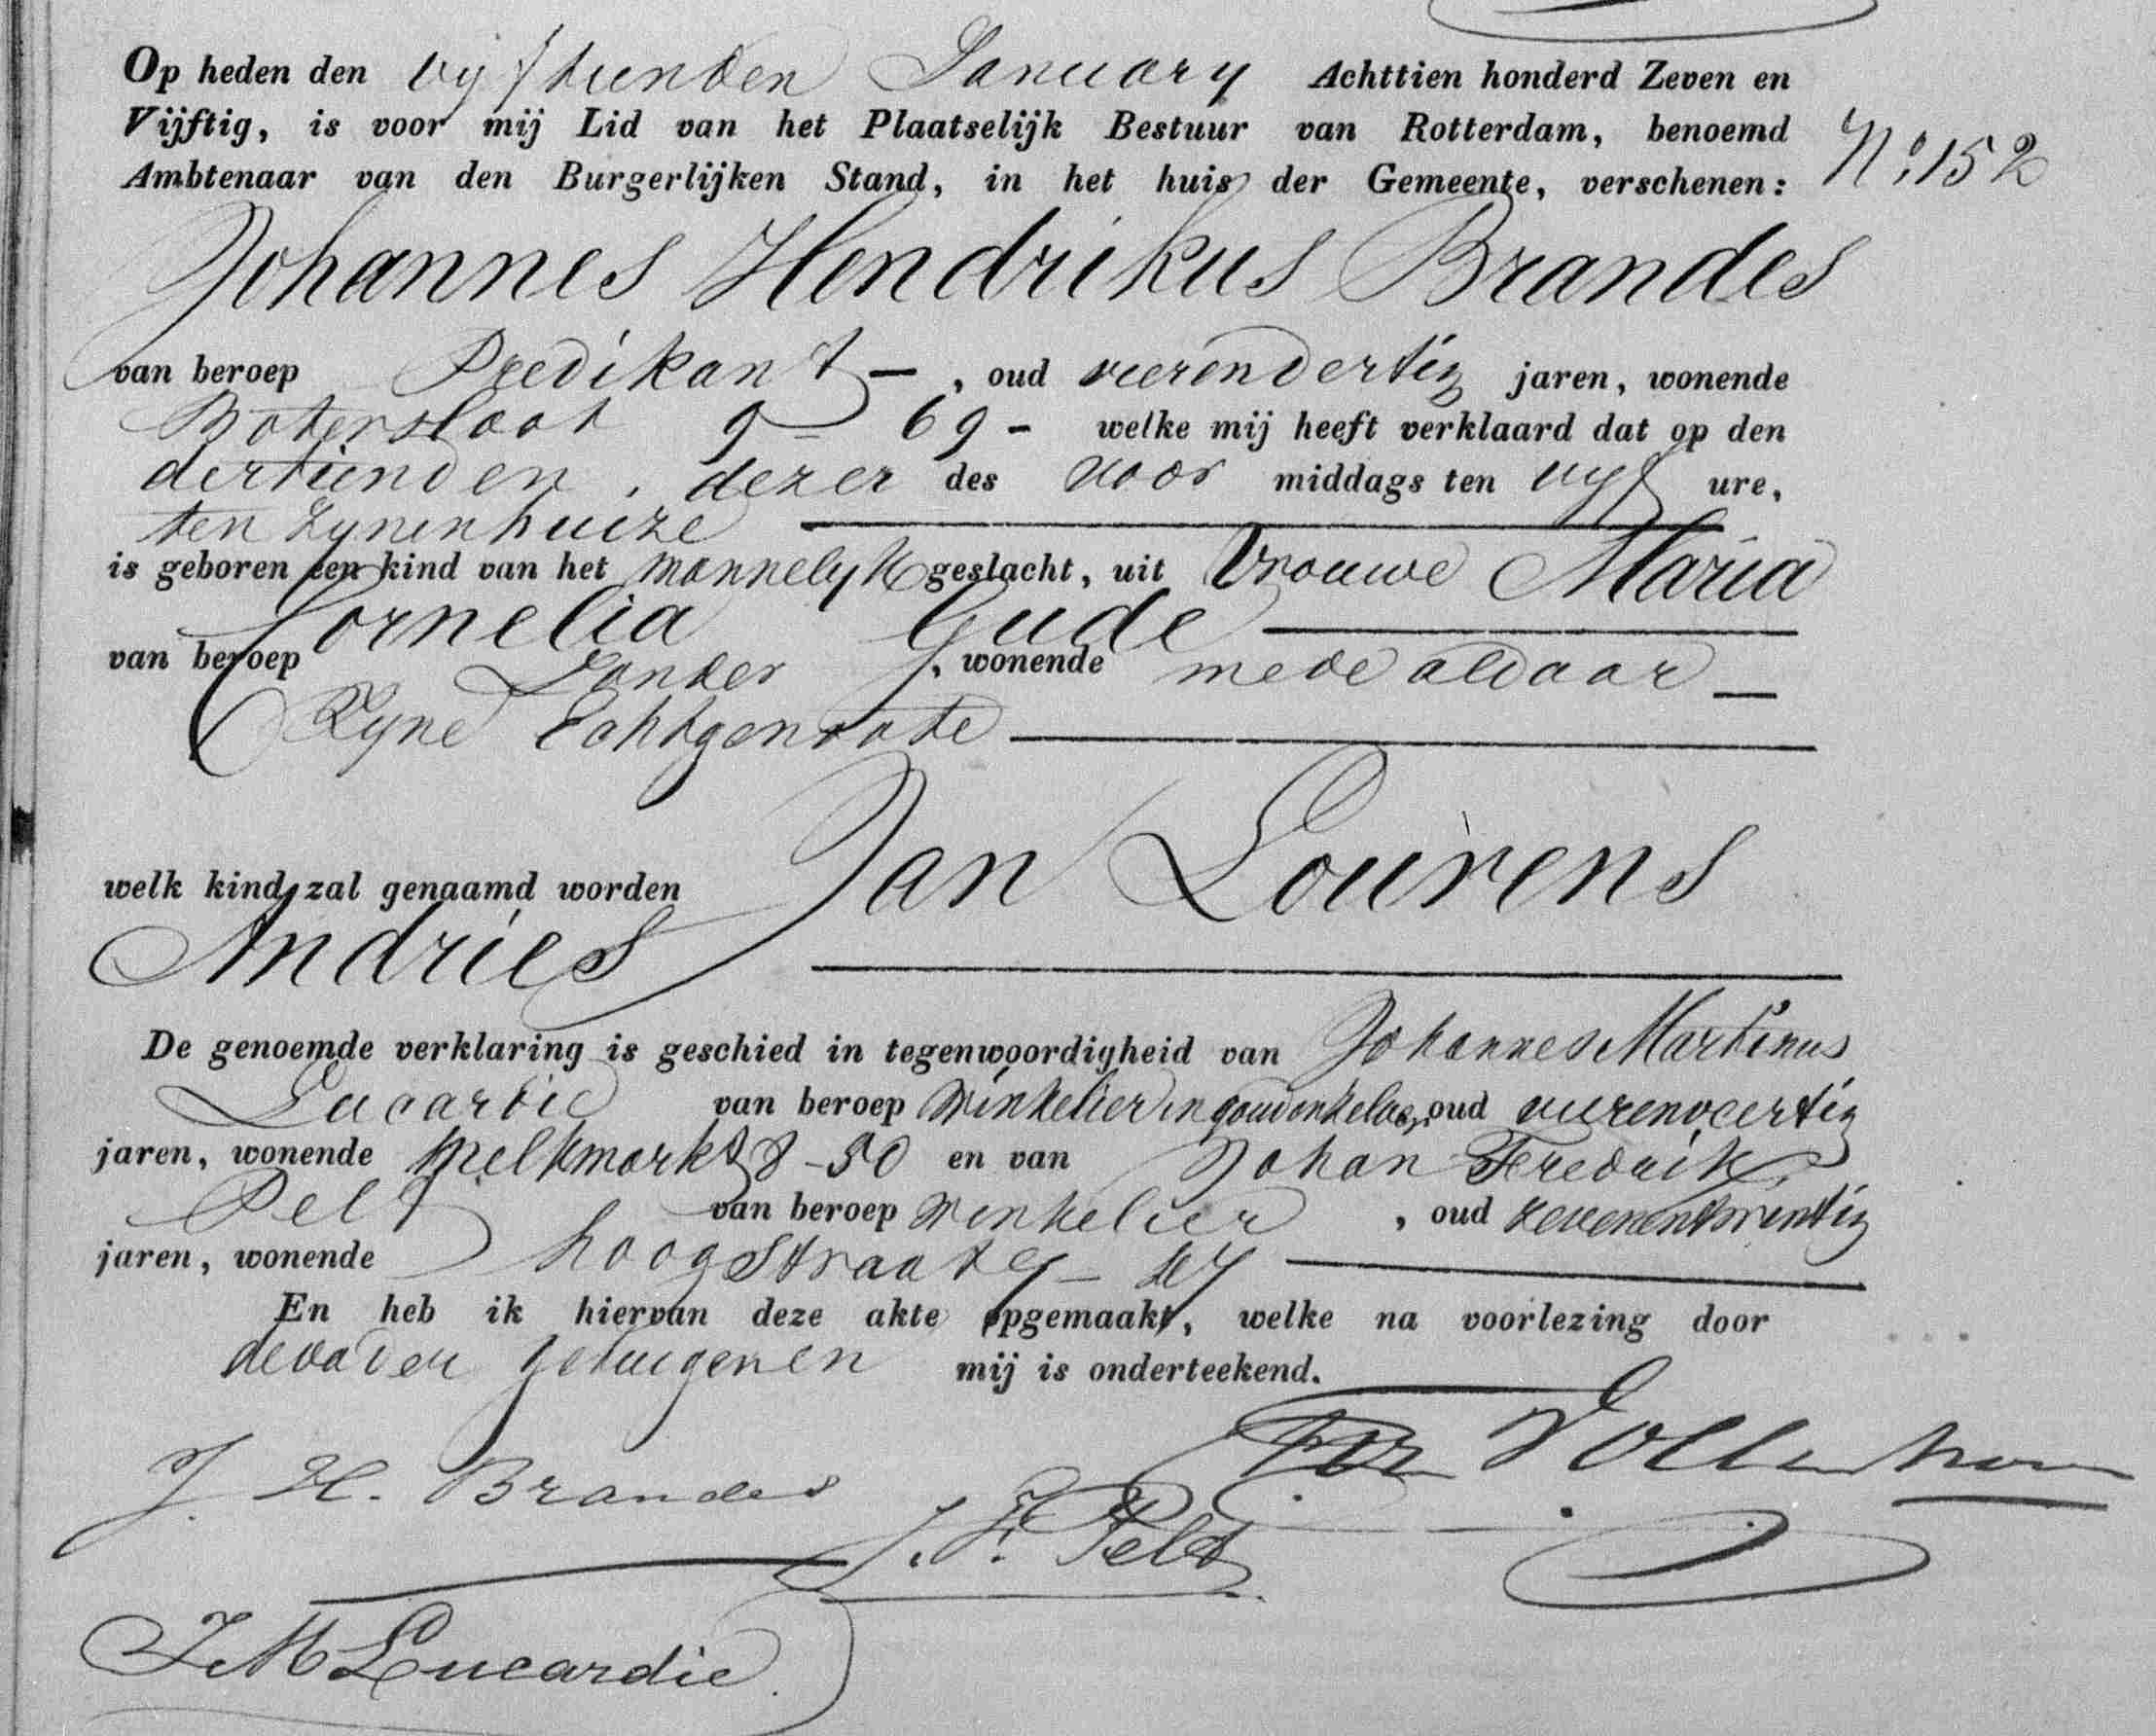 Op heden den vyftienden January Achttien honderd Zeven en
Vijftig, is voor mij Lid van het Plaatselijk Bestuur van Rotterdam, benoemd
Ambtenaar van den Burgerlijken Stand, in het huis der Gemeente, verschenen:
No. 152
Johannes Hendrikus Brandes
van beroep Predikant —, oud vierendertig jaren, wonende
Botersloot 9 – 69 – welke mij heeft verklaard dat op den
dertienden dezer des voor middags ten vyf ure,
ten zynen huize
is geboren een kind van het mannelyk geslacht, uit Vrouwe Maria
Cornelia Gude
van beroep Zonder, wonende mede aldaar —
Zyne Echtgenoote
welk kind zal genaamd worden Jan Lourens
Andries
De genoemde verklaring is geschied in tegenwoordigheid van Johannes Martinus
Lucardie van beroep Winkelier in goud en zilver, oud vierenveertig
jaren, wonende Melkmarkt 8 – 50 en van Johan Fredrik
Pelt van beroep Winkelier, oud zevenentwintig
jaren, wonende hoogstraat 9 –
En heb ik hiervan deze akte opgemaakt, welke na voorlezing door
de vader getuigen en mij is onderteekend.
J. H. Brandes
J. F. Pelt
J M Lucardie